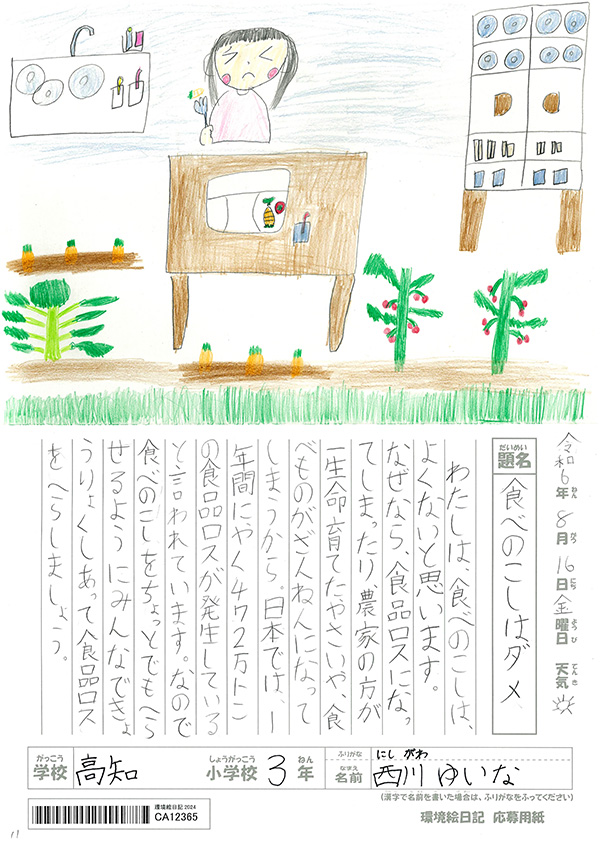 令和6年8月16日金曜日 天気
ねん がつ にち ようび てんき
だいめい
題名 食べのこしはダメ
わたしは、食べのこしは、
よくないと思います。
なぜなら、食品ロスになっ
てしまったり、農家の方が
一生命育てたやさいや、食
べものがざんねんになって
しまうから。日本では、一
年間にやく472万トン
の食品ロスが発生している
と言われています。なので
食べのこしをちょっとでもへら
せるようにみんなできょ
うりょくしあって食品ロス
をへらしましょう。
がっこう しょうがっこう ねん
学校 高知 小学校 3年
ふりがな にしがわ
なまえ
名前 西川ゆいな
(漢字で名前を書いた場合は、ふりがなをふってください)
環境絵日記2024
CA12365
環境絵日記 応募用紙
11